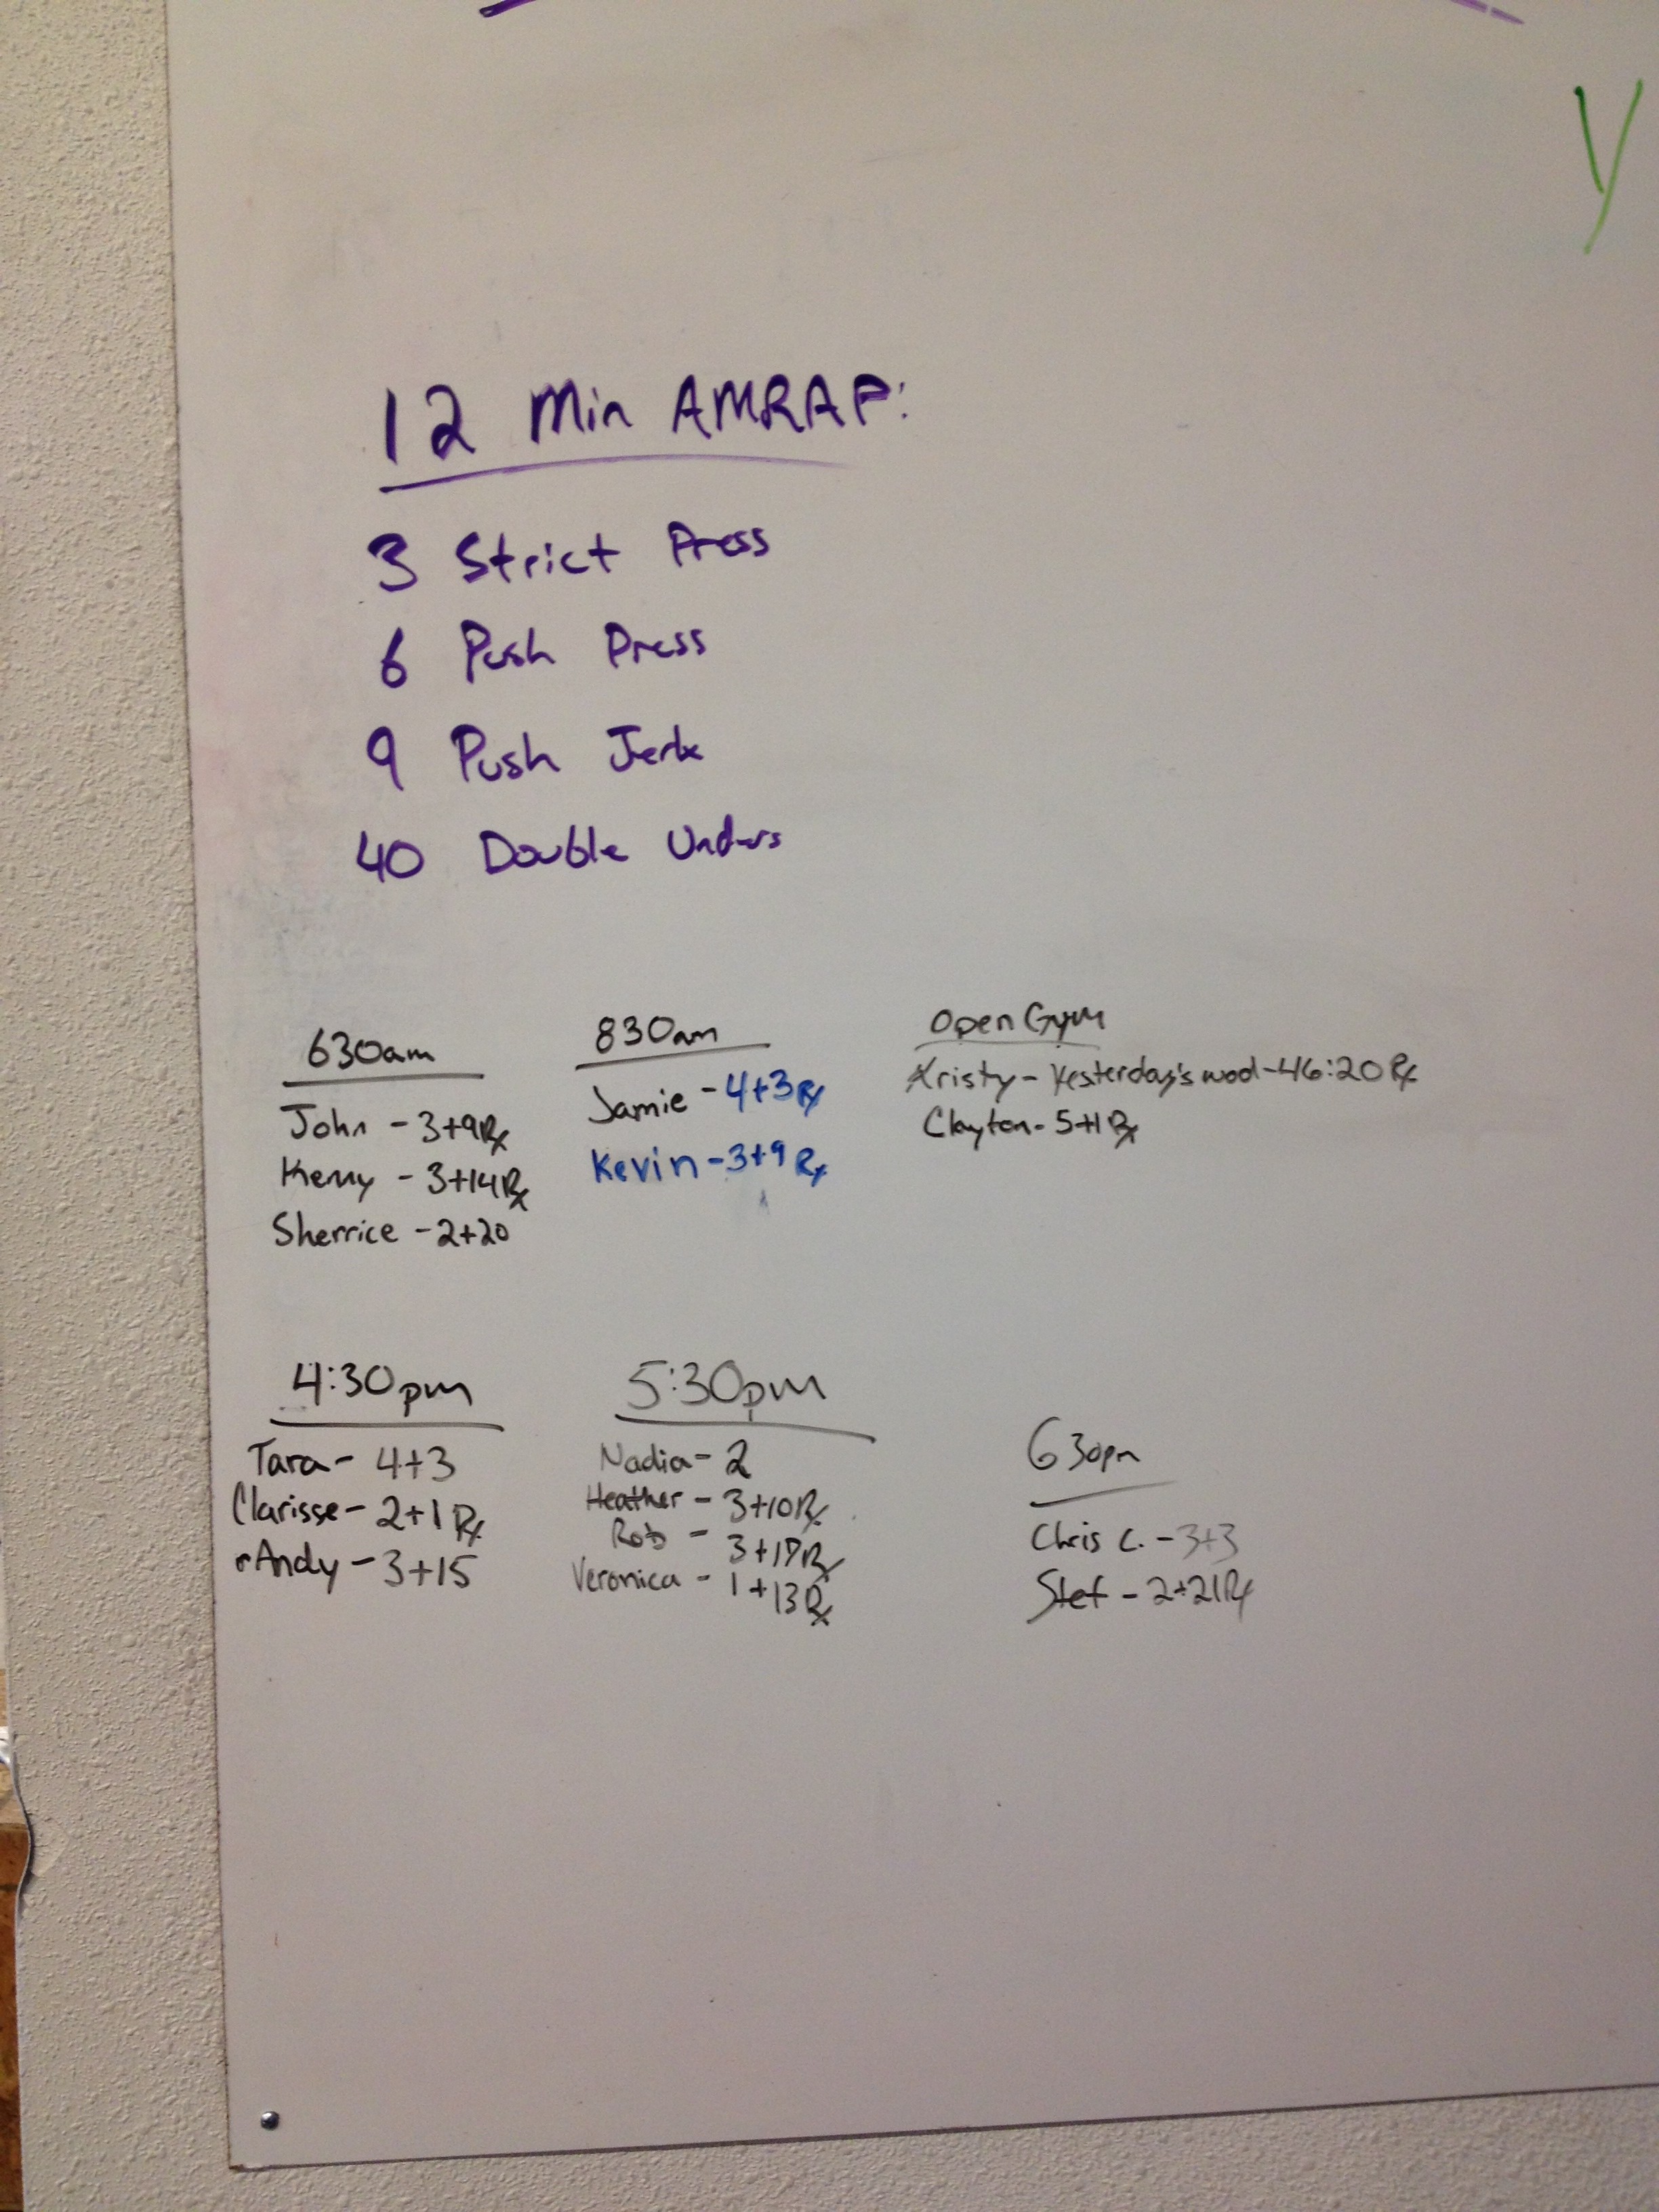 Y
12 Min AMRAP:
3 Strict Press
6 Push Press
9 Push Jerk
40 Double Unders
630am
John - 3+9Rx
Kerry - 3+14Rx
Sherrice - 2+20
830am
Jamie - 4+3Rx
Kevin - 3+9 Rx
Open Gym
Kristy - Yesterday's wod - 46:20 Rx
Clayton - 5+1 Rx
4:30pm
Tara - 4+3
Clarisse - 2+1 Rx
Andy - 3+15
5:30pm
Nadia - 2
Heather - 3+10Rx
Rob - 3+17Rx
Veronica - 1+13Rx
630pm
Chris C. - 3+3
Stef - 2+21Rx